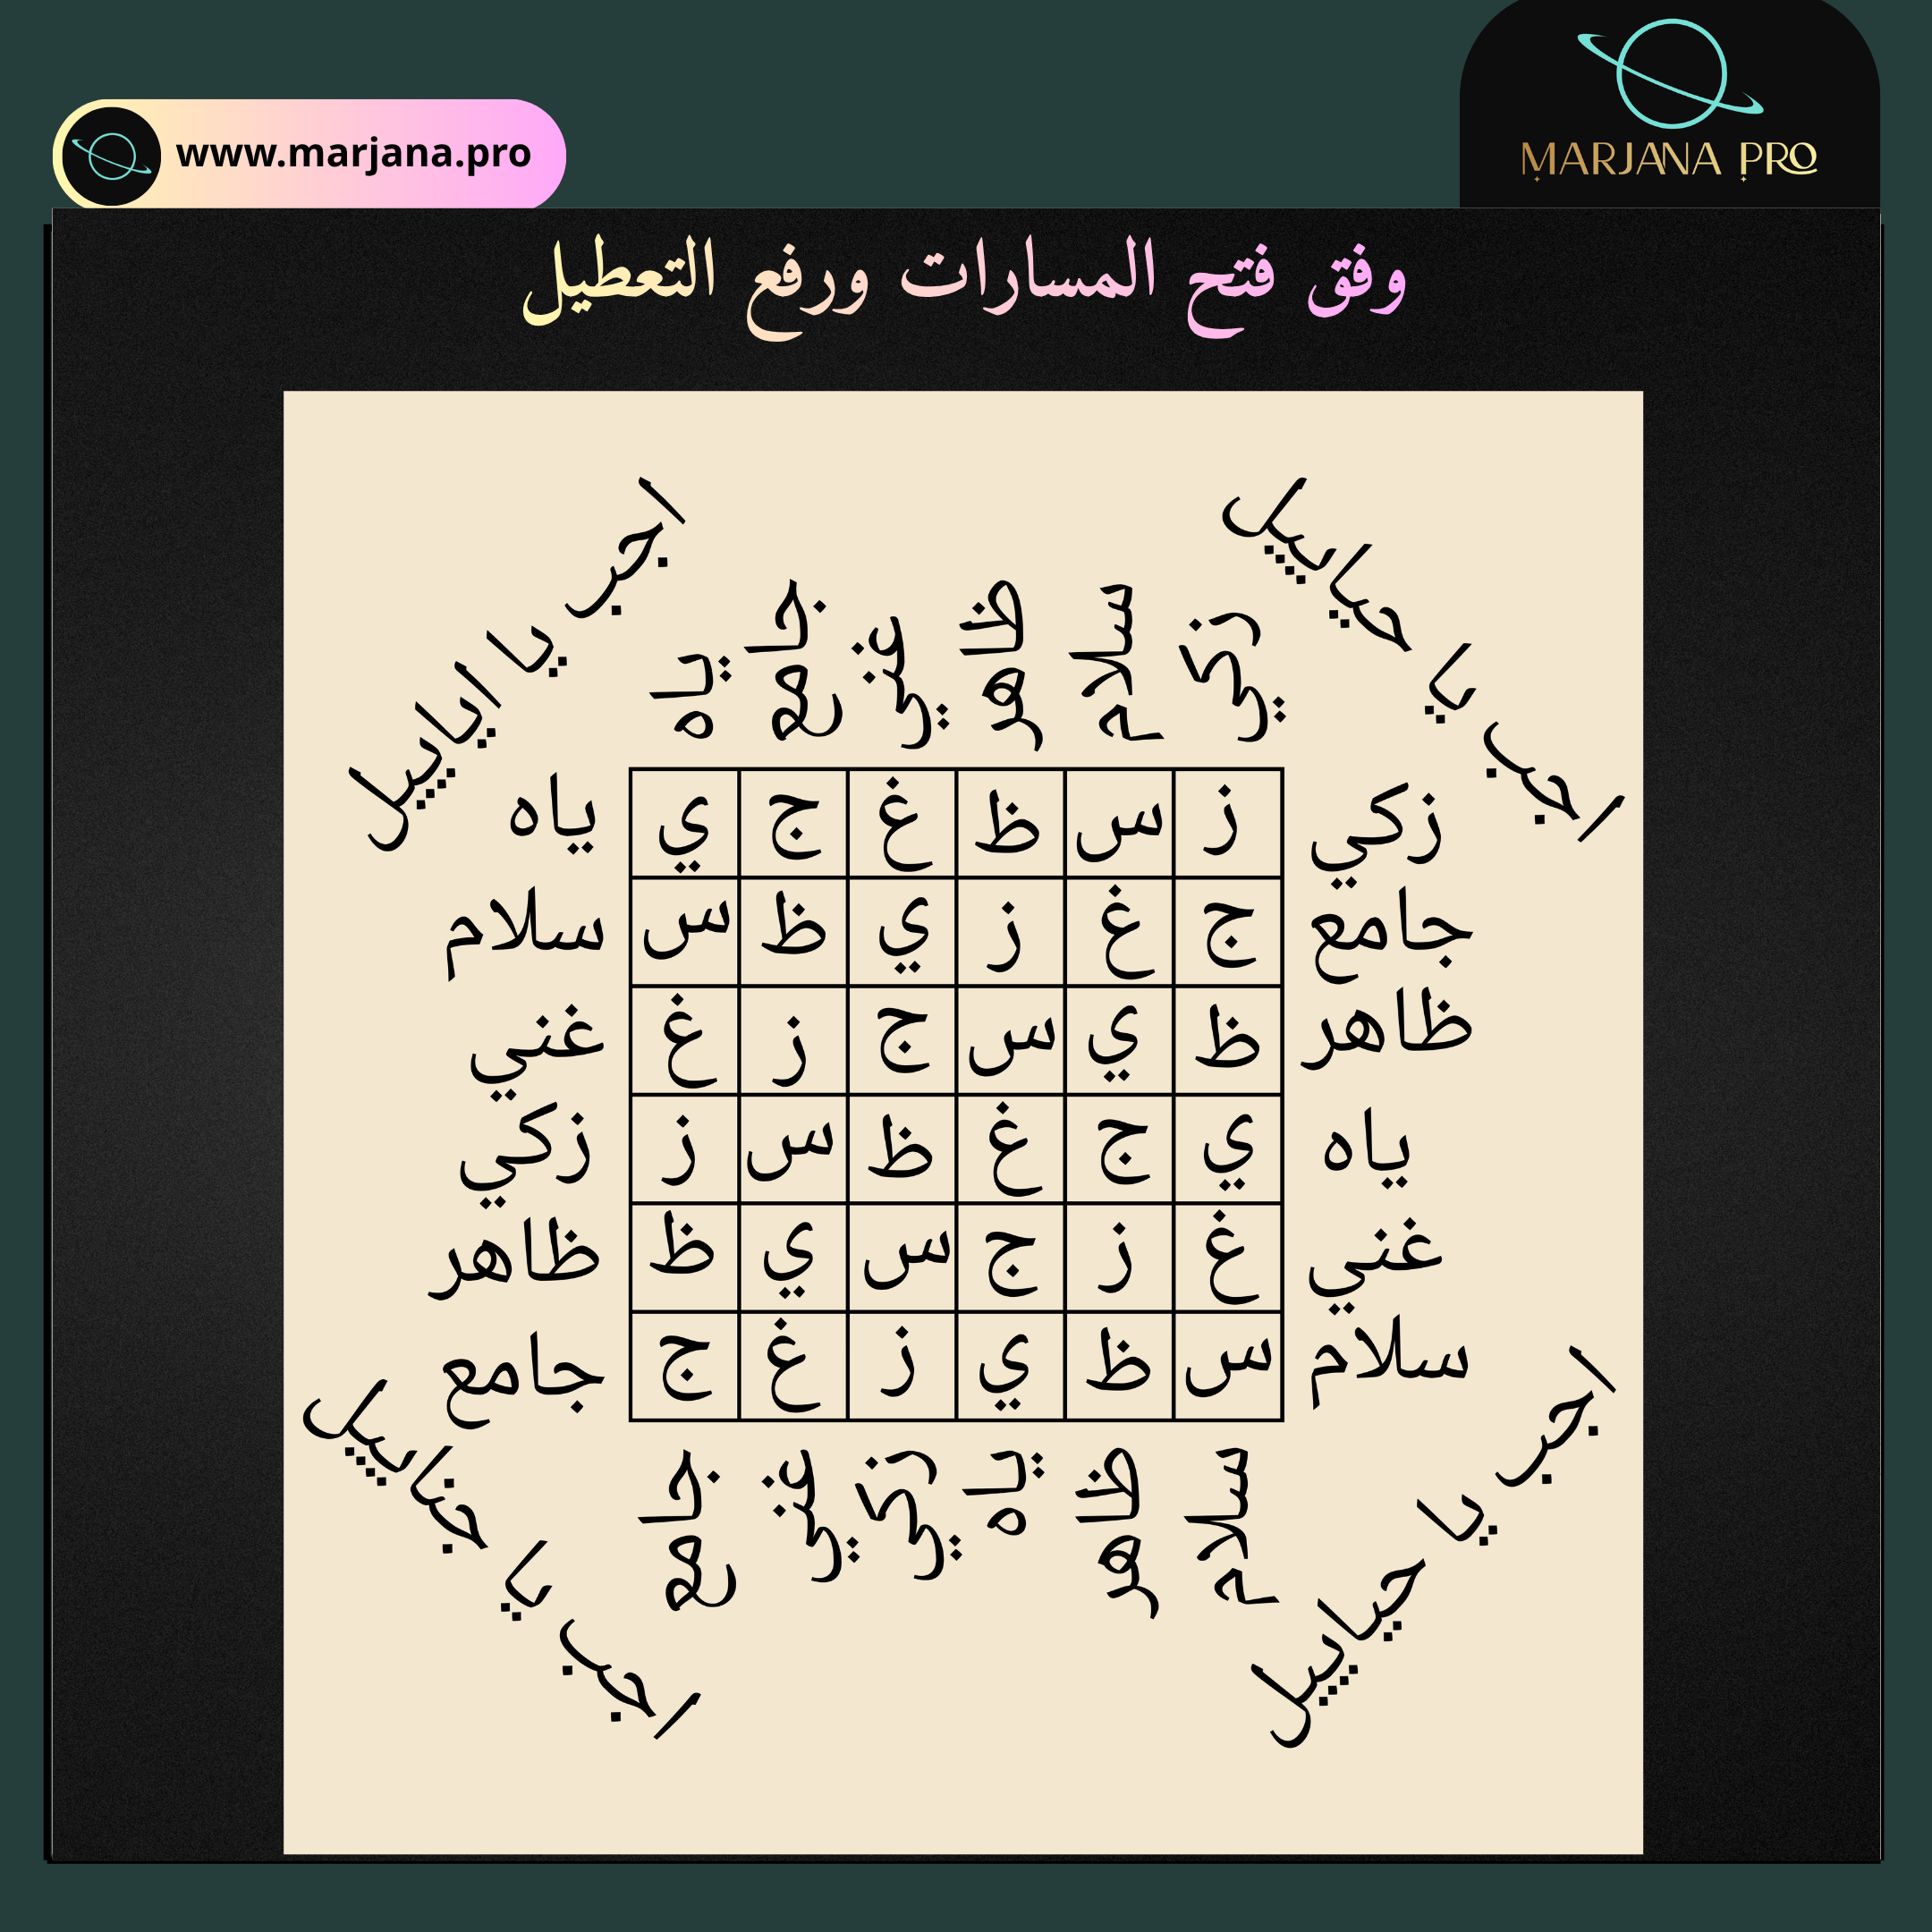 www.marjana.pro
MARJANA PRO
وفق فتح المسارات ورفع التعطيل
اجب يا حيايييل
اجب يا اياييل
زكي سلام ظاهر غني جامع ياه
زكي ز س ظ غ ج ي ياه
جامع ج غ ز ي ظ س سلام
ظاهر ظ ي س ج ز غ غني
ياه ي ج غ ظ س ز زكي
غني غ ز ج س ي ظ ظاهر
سلام س ظ ي ز غ ج جامع
سلام ظاهر ياه زكي غني جامع
اجب يا حياييل
اجب يا جناييل